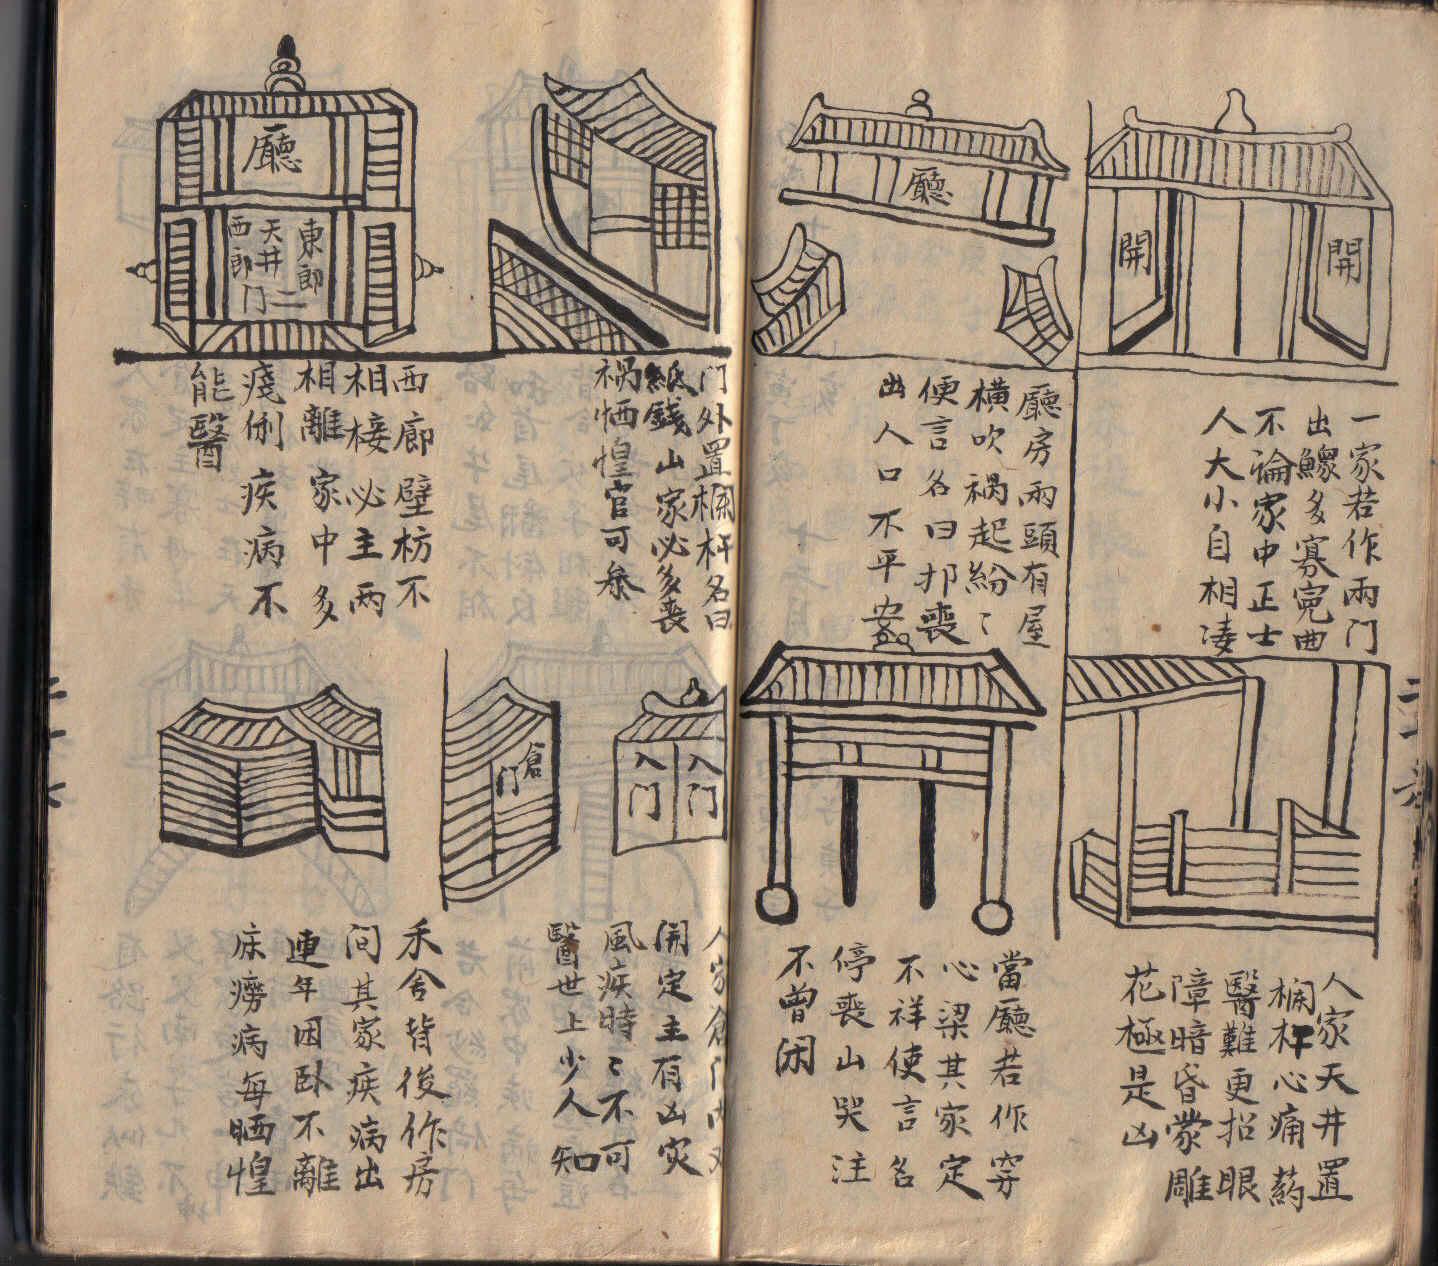 開
開
一家若作兩門
出鰥多寡寃曲
不論家中正士
人大小自相凌
廳
廳房兩頭有屋
橫吹祸起紛〻
便言名曰扚喪
出人口不平安
人家天井置
欄杆心痛葯
醫難更招眼
障暗昏蒙雕
花極是凶
當廳若作穿
心梁其家定
不祥使言名
停喪山哭注
不曾闲
門外置欄杆名曰
紙錢山家必多喪
祸恓惶官可叅
廳
東郎
天井二
西郎门
西廊壁枋不
相接必主兩
相離家中多
殘俐疾病不
能醫
入门
入门
人家倉门内
開定主有凶灾
風疾時〻不可
醫世上少人知
倉门
禾舍背後作房
问其家疾病出
連年因卧不離
床癆病每晒惶
二十六